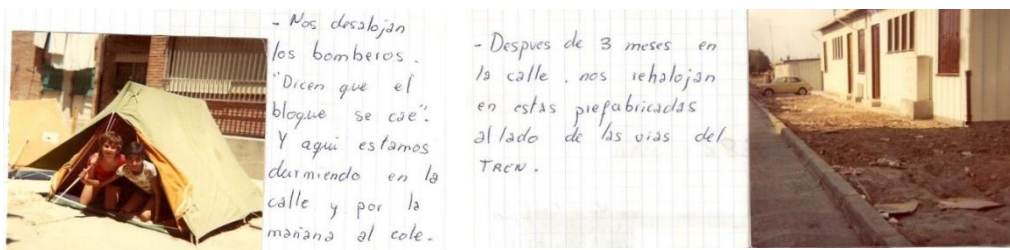 - Nos desalojan
los bomberos.
"Dicen que el
bloque se cae".
Y aqui estamos
durmiendo en la
calle y por la
mañana al cole.
- Despues de 3 meses en
la calle, nos rehalojan
en estas prefabricadas
al lado de las vias del
TREN.